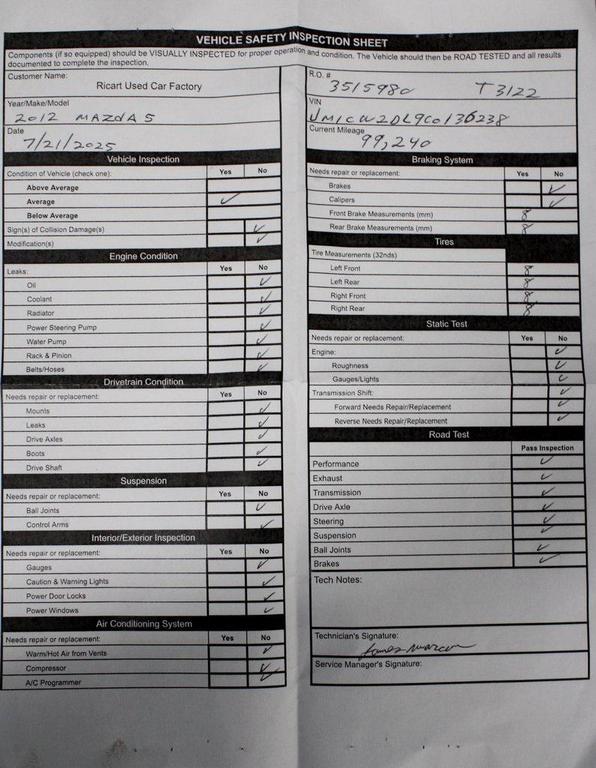 VEHICLE SAFETY INSPECTION SHEET
Components (if so equipped) should be VISUALLY INSPECTED for proper operation and condition. The Vehicle should then be ROAD TESTED and all results
documented to complete the inspection.
Customer Name:
Ricart Used Car Factory
Year/Make/Model
2012 MAZDA 5
Date
7/21/2025
Vehicle Inspection
Condition of Vehicle (check one): Yes No
Above Average
Average ✓
Below Average
Sign(s) of Collision Damage(s) ✓
Modification(s) ✓
Engine Condition
Leaks: Yes No
Oil ✓
Coolant ✓
Radiator ✓
Power Steering Pump ✓
Water Pump ✓
Rack & Pinion ✓
Belts/Hoses ✓
Drivetrain Condition
Needs repair or replacement: Yes No
Mounts ✓
Leaks ✓
Drive Axles ✓
Boots ✓
Drive Shaft ✓
Suspension
Needs repair or replacement: Yes No
Ball Joints ✓
Control Arms ✓
Interior/Exterior Inspection
Needs repair or replacement: Yes No
Gauges ✓
Caution & Warning Lights ✓
Power Door Locks ✓
Power Windows ✓
Air Conditioning System
Needs repair or replacement: Yes No
Warm/Hot Air from Vents ✓
Compressor ✓
A/C Programmer ✓
R.O. #
3515980 T3122
VIN
JM1CW2DL9C0136238
Current Mileage
99,240
Braking System
Needs repair or replacement: Yes No
Brakes ✓
Calipers ✓
Front Brake Measurements (mm) 8
Rear Brake Measurements (mm) 8
Tires
Tire Measurements (32nds)
Left Front 8
Left Rear 8
Right Front 8
Right Rear 8
Static Test
Needs repair or replacement: Yes No
Engine: ✓
Roughness ✓
Gauges/Lights ✓
Transmission Shift: ✓
Forward Needs Repair/Replacement ✓
Reverse Needs Repair/Replacement ✓
Road Test
Pass Inspection
Performance ✓
Exhaust ✓
Transmission ✓
Drive Axle ✓
Steering ✓
Suspension ✓
Ball Joints ✓
Brakes ✓
Tech Notes:
Technician's Signature:
Service Manager's Signature: